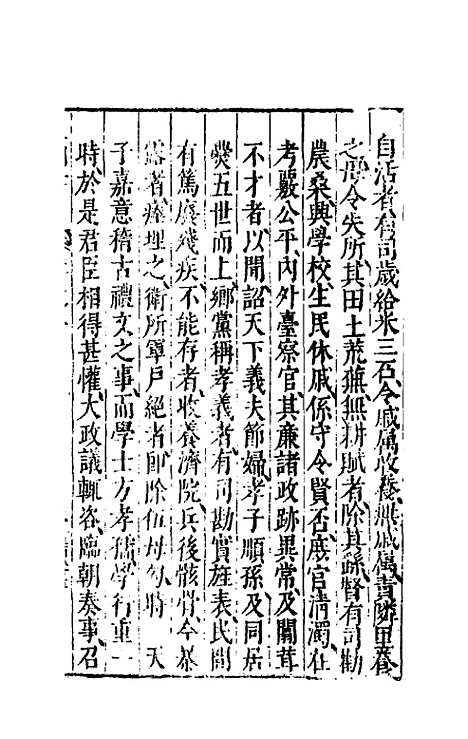 自活者有司歲給米三石令戚属收養無戚屬責隣里養
之毋令失所其田土荒蕪無耕賦者除其籍督有司勸
農桑興學校生民休戚係守令賢否庶官清濁在
考嚴公平內外臺察官其廉諸政跡異常及闒茸
不才者以聞詔天下義夫節婦孝子順孫及同居
爨五世而上鄉黨稱孝義者有司勘實旌表民間
有篤廢殘疾不能存者收養濟院兵後骸骨今暴
露者瘞埋之衛所軍戶絕者即除伍毋勾時 天
子嘉意稽古禮文之事而學士方孝孺學行重一
時於是君臣相得甚懽大政議輒咨臨朝奏事召